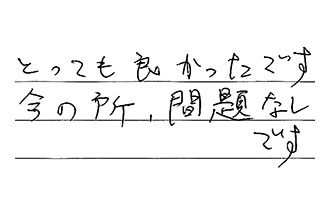 とっても良かったです
今の所、問題なし
です